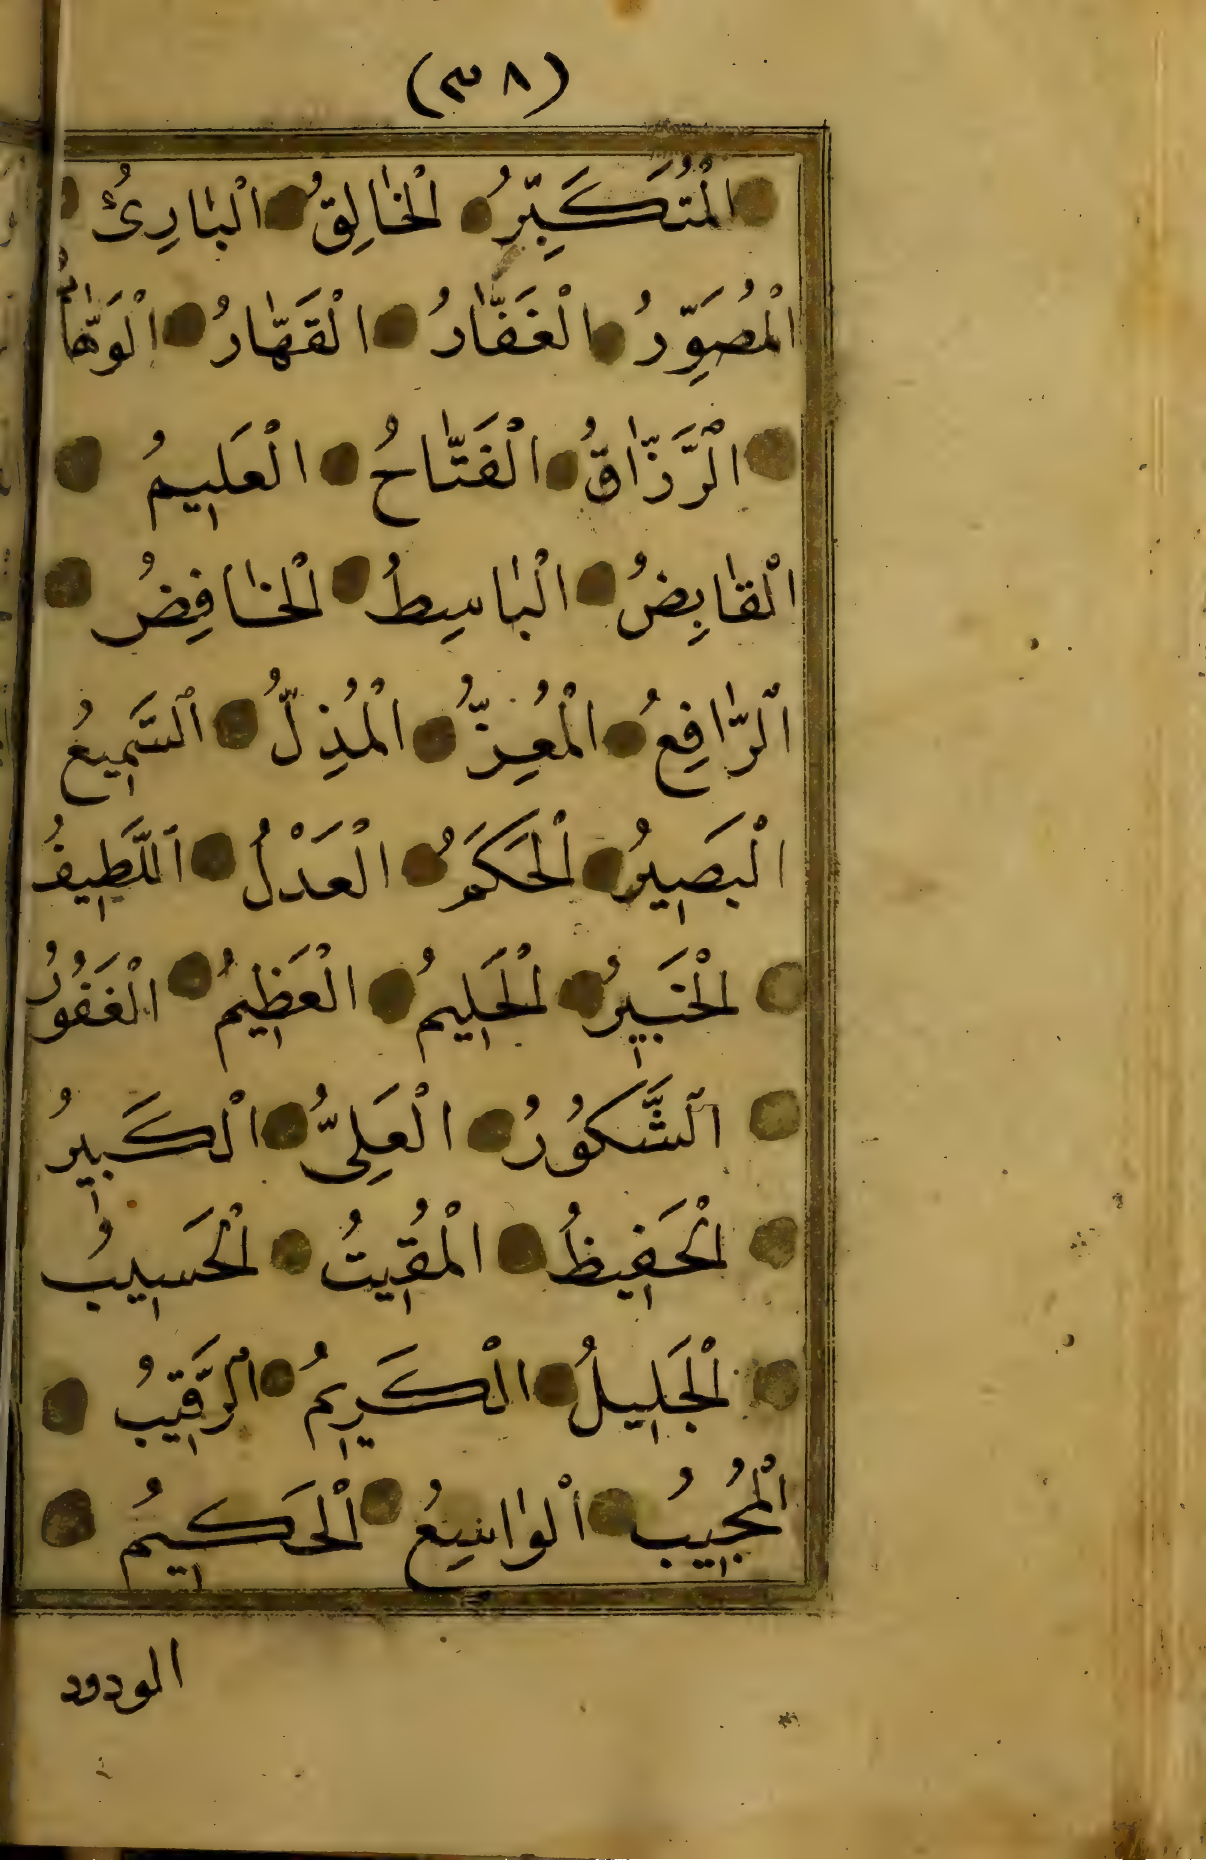 (٣٨)
الْمُتَكَبِّرُ الْخَالِقُ الْبَارِئُ
الْمُصَوِّرُ الْغَفَّارُ الْقَهَّارُ الْوَهَّابُ
الْرَّزَّاقُ الْفَتَّاحُ الْعَلِيمُ
الْقَابِضُ الْبَاسِطُ الْخَافِضُ
اَلرَّافِعُ الْمُعِزُّ الْمُذِلُّ اَلسَّمِيعُ
الْبَصِيرُ الْحَكَمُ الْعَدْلُ اَللَّطِيفُ
الْخَبِيرُ الْحَلِيمُ الْعَظِيمُ الْغَفُورُ
اَلشَّكُورُ الْعَلِىُّ الْكَبِيرُ
الْحَفِيظُ الْمُقِيتُ الْحَسِيبُ
الْجَلِيلُ الْكَرِيمُ اَلرَّقِيبُ
الْمُجِيبُ الْوَاسِعُ الْحَكِيمُ
الودود